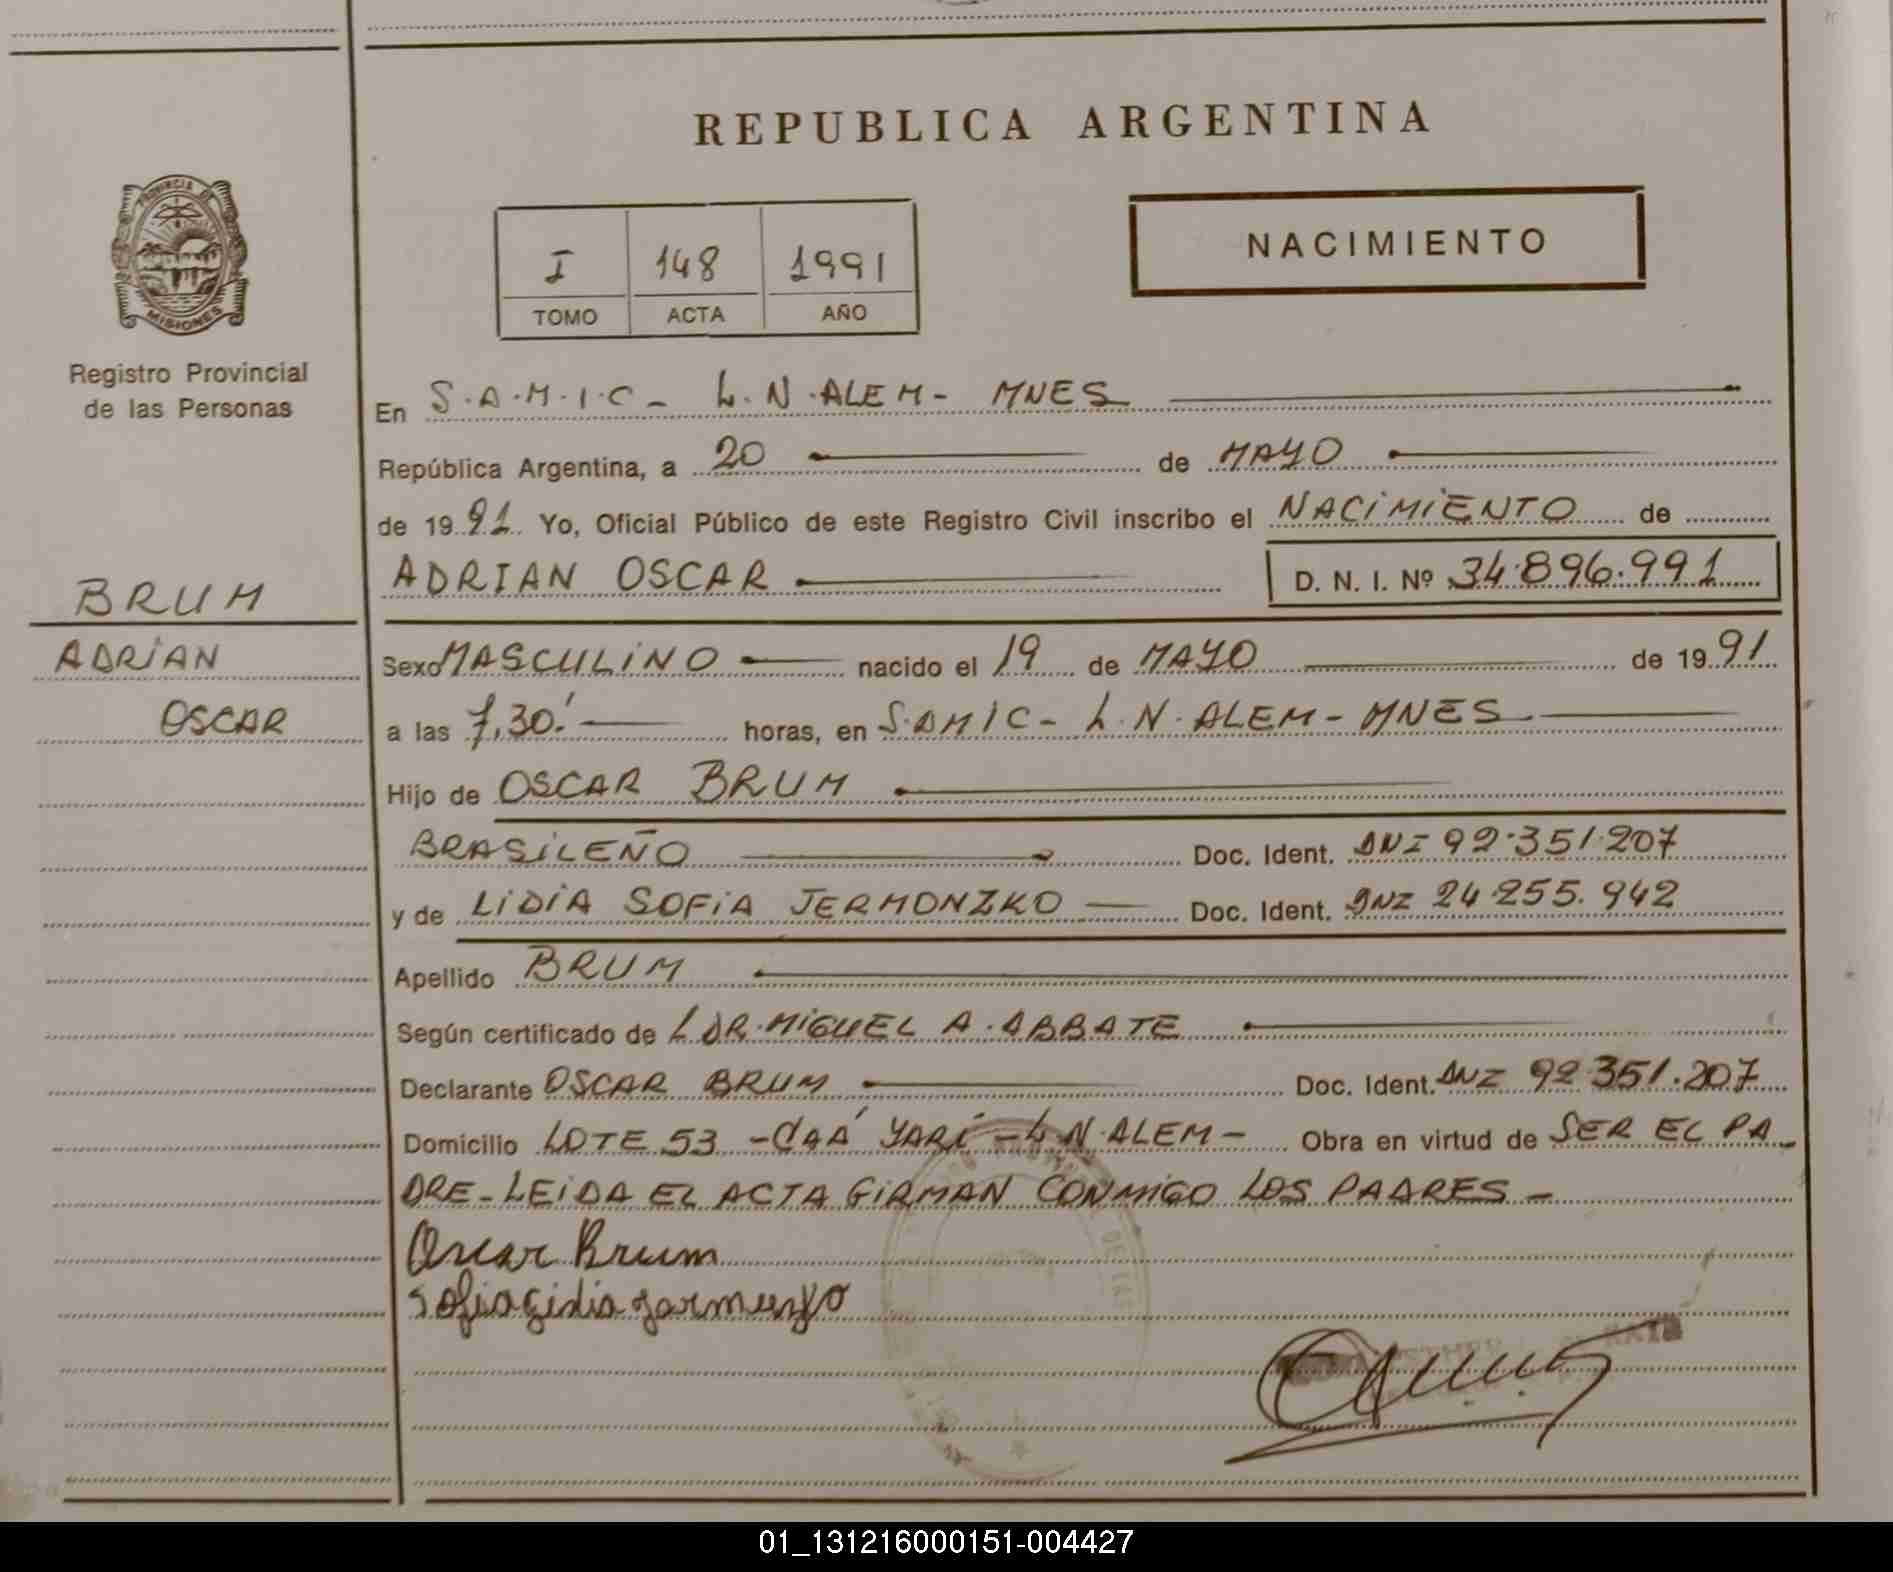 REPUBLICA ARGENTINA
PROVINCIA DE
MISIONES
Registro Provincial
de las Personas
I 148 1991
TOMO ACTA AÑO
NACIMIENTO
En S.A.M.I.C - L.N.ALEM - MNES
República Argentina, a 20 de MAYO
de 1991 Yo, Oficial Público de este Registro Civil inscribo el NACIMIENTO de
ADRIAN OSCAR D. N. I. Nº 34.896.991
BRUM
ADRIAN
OSCAR
Sexo MASCULINO nacido el 19 de MAYO de 1991
a las 7,30.' horas, en S.AMIC - L.N.ALEM - MNES
Hijo de OSCAR BRUM
BRASILEÑO Doc. Ident. DNI 92.351.207
y de LIDIA SOFIA JERMONZKO Doc. Ident. DNI 24.255.942
Apellido BRUM
Según certificado de L DR. MIGUEL A. ABBATE
Declarante OSCAR BRUM Doc. Ident. DNI 92.351.207
Domicilio LOTE 53 - CAÁ YARÍ - L.N.ALEM - Obra en virtud de SER EL PA-
DRE - LEIDA EL ACTA GIRMAN CONMIGO LOS PADRES -
Oscar Brum
Sofia Lidia
01_131216000151-004427